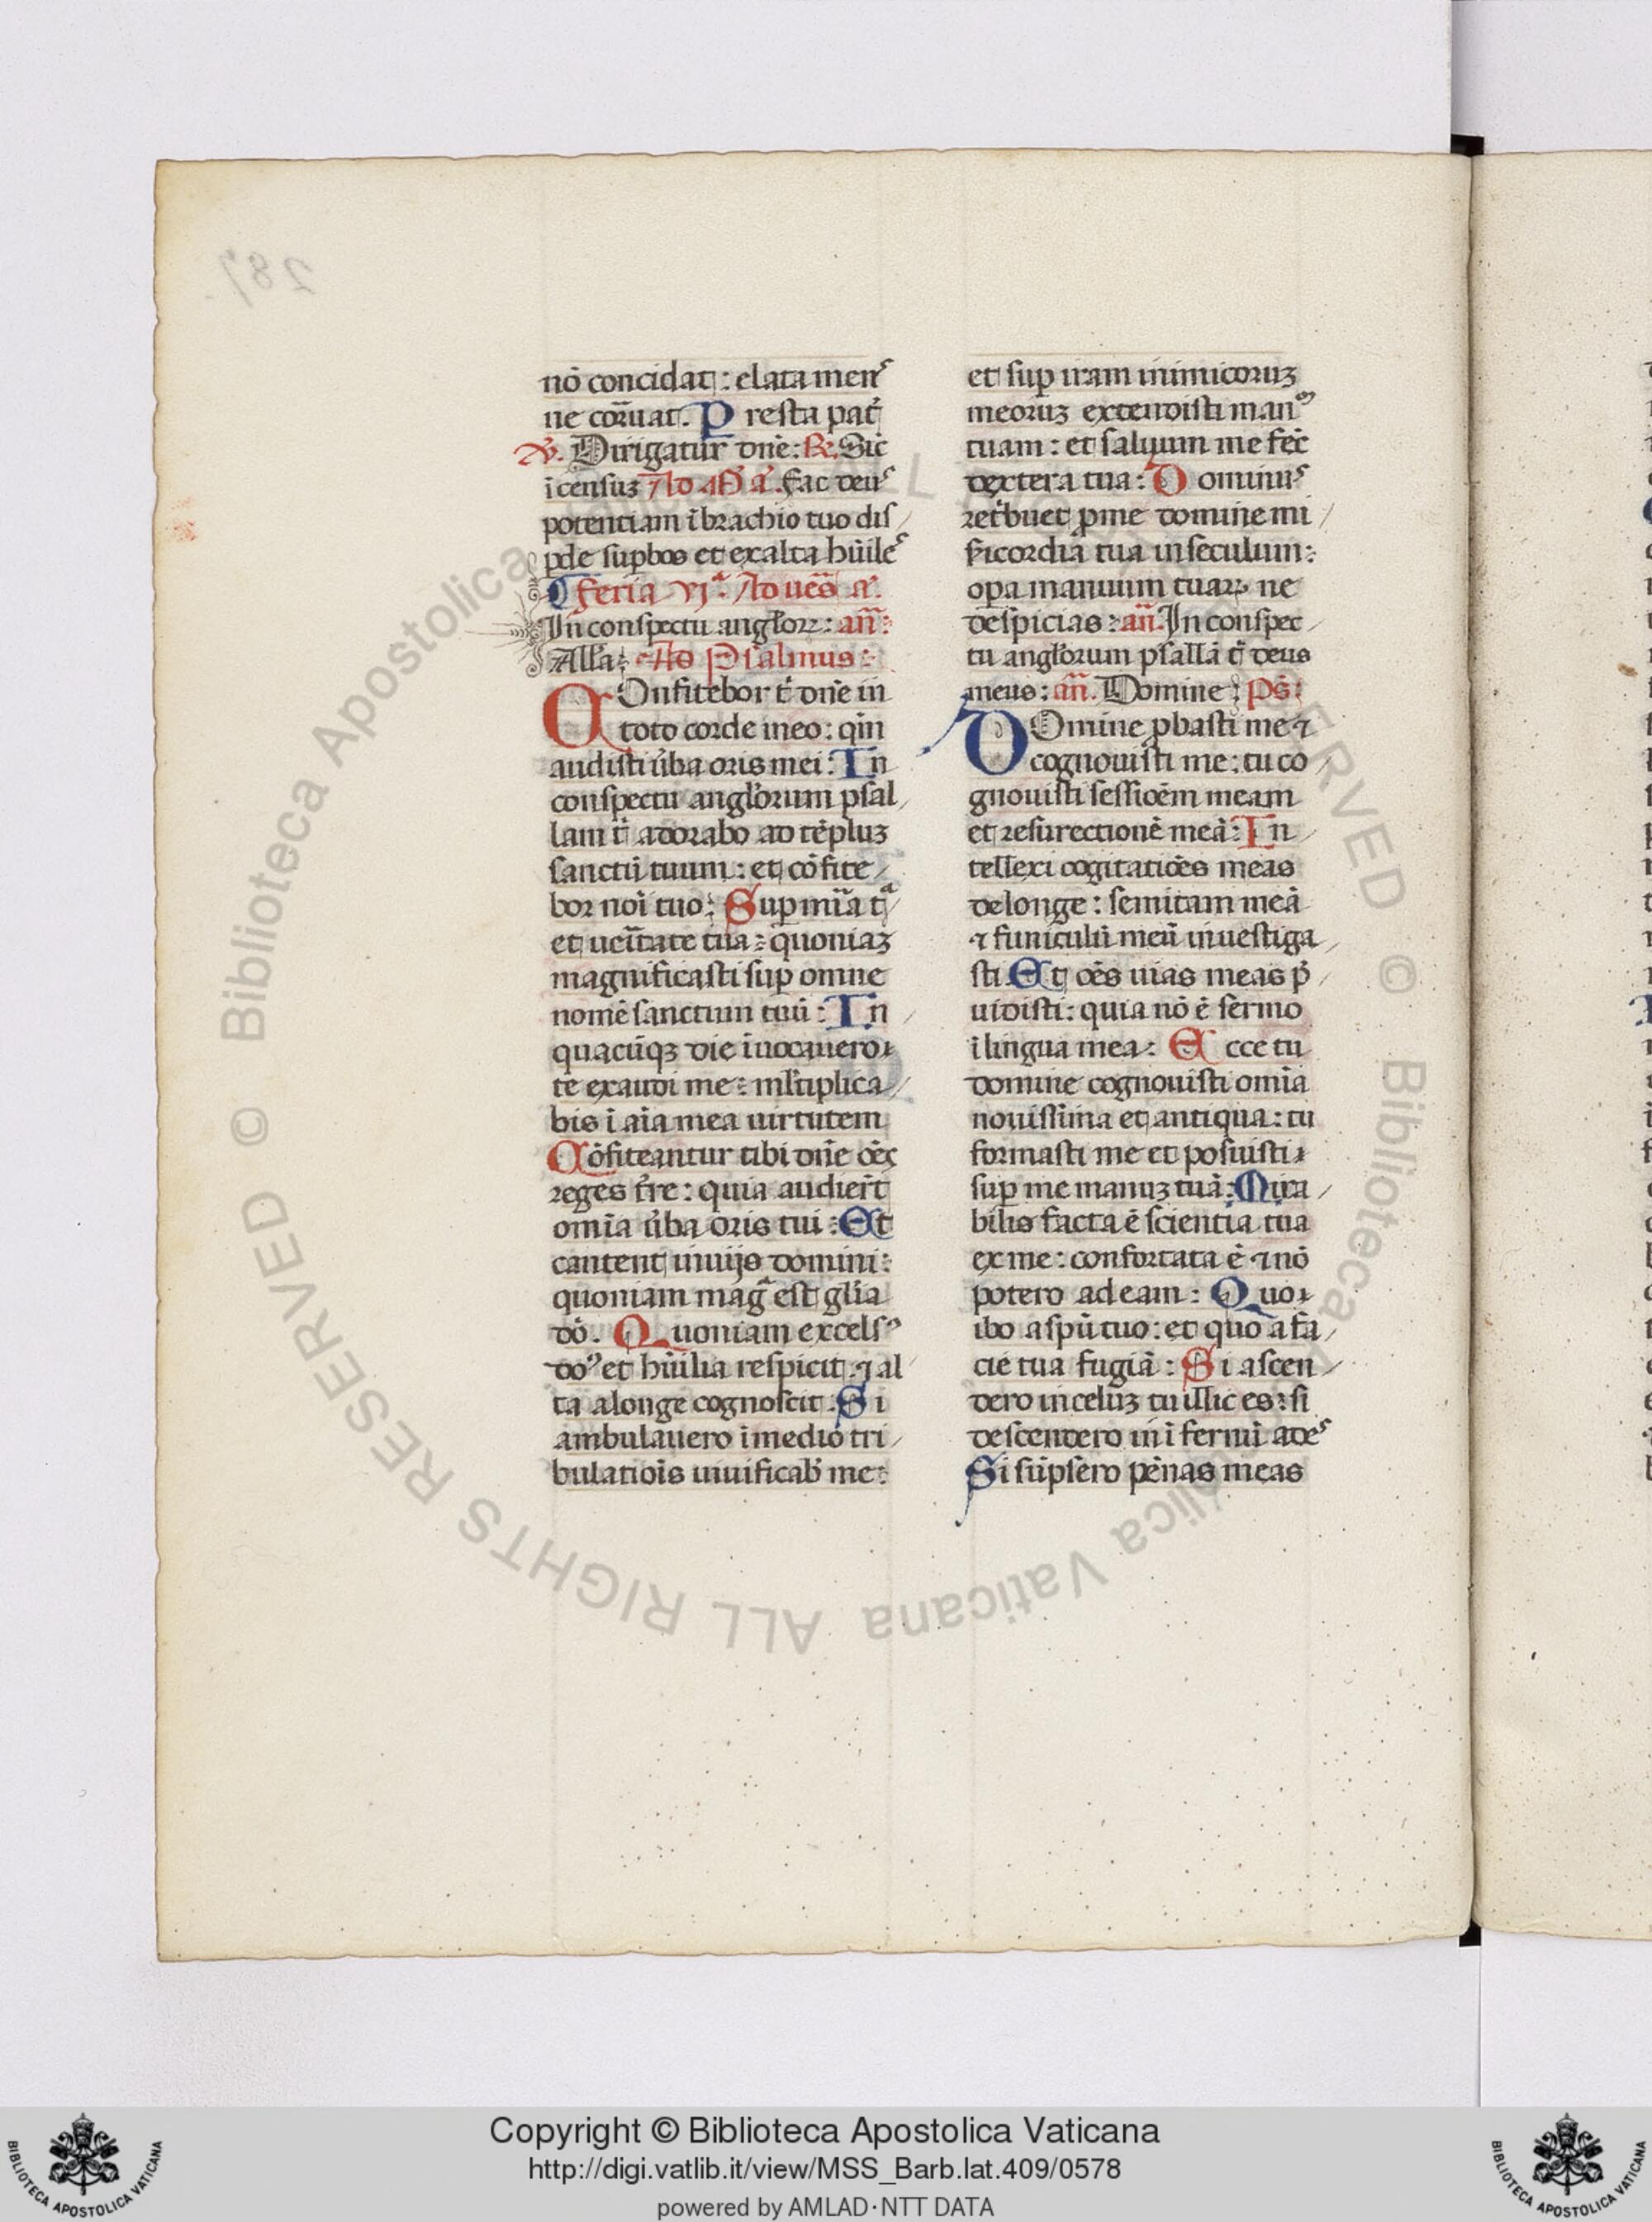 nō concidat: elata menˢ
ne cor̄uat. P resta pat̄
℣. Dirigatur dn̄e: ℟. Sic̄
īcensuꝫ Ad Mᵃ. a. Fac deuˢ
potentiam ī brachio tuo dis/
ꝑde suꝑbos et exalta hūileˢ
Feria vjᵃ. Ad ues̄ a.
In conspectu angl̓oꝝ: an̄:
All̓a: Ad Psalmus:
COnfitebor t̄ dn̄e in
toto corde meo: qm̄
audisti ūba oris mei: In
conspectu angl̓orum psal/
lam t̄ adorabo ad tēpluꝫ
sanctū tuum: et cōfite/
bor noī tuo: Suꝑ mīa tᵃ/
et uēitate tua: quoniaꝫ
magnificasti suꝑ omne
nomē sanctum tuū: In/
quacūqꝫ die īuocauero
te exaudi me: ml̓tiplica/
bis ī aīa mea uirtutem
Cōfiteantur tibi dn̄e oēs
reges t̄re: quia audier̄t
omīa ūba oris tui: Et
cantent in uijs domini:
quoniam magᵃ est gl̓ia
dō. Quoniam excelsꝰ
doꝰ et hūilia respicit ⁊ al
ta a longe cognoscit. Si
ambulauero ī medio tri/
bulatiōis uiuificab̄ me:
et suꝑ iram inimicoruꝫ
meoruꝫ extendisti manᵐ
tuam: et saluum me fec̄
dextera tua: D ominuˢ
ret̄buet ꝓ me domine mi/
s̄icordia tua in seculum:
oꝑa manuum tuaꝝ ne
despicias: an̄. In conspec/
tu angl̓orum psallā t̄ deus
meus: an̄. Domine: Ps̄:
DOmine ꝓbasti me ⁊
cognouisti me: tu co/
gnouisti sessioēm meam
et resurectionē meā: In/
tellexi cogitatiōes meas
de longe: semitam meā
⁊ funiculū meū inuestiga/
sti Et oēs uias meas p̄/
uidisti: quia nō ē sermo
ī lingua mea: E cce tu
domine cognouisti omīa
nouissima et antiqua: tu
formasti me et posuisti
suꝑ me manuꝫ tuā: Mira/
bilis facta ē scientia tua
ex me: confortata ē ⁊ nō
potero ad eam: Quo
ibo a spū tuo: et quo a fa/
cie tua fugiā: Si ascen/
dero in celuꝫ tu illic es: si
descendero in īfernū adeˢ
Si sūpsero pēnas meas
Copyright © Biblioteca Apostolica Vaticana
http://digi.vatlib.it/view/MSS_Barb.lat.409/0578
powered by AMLAD·NTT DATA
BIBLIOTECA APOSTOLICA VATICANA
BIBLIOTECA APOSTOLICA VATICANA
© Biblioteca Apostolica Vaticana ALL RIGHTS RESERVED